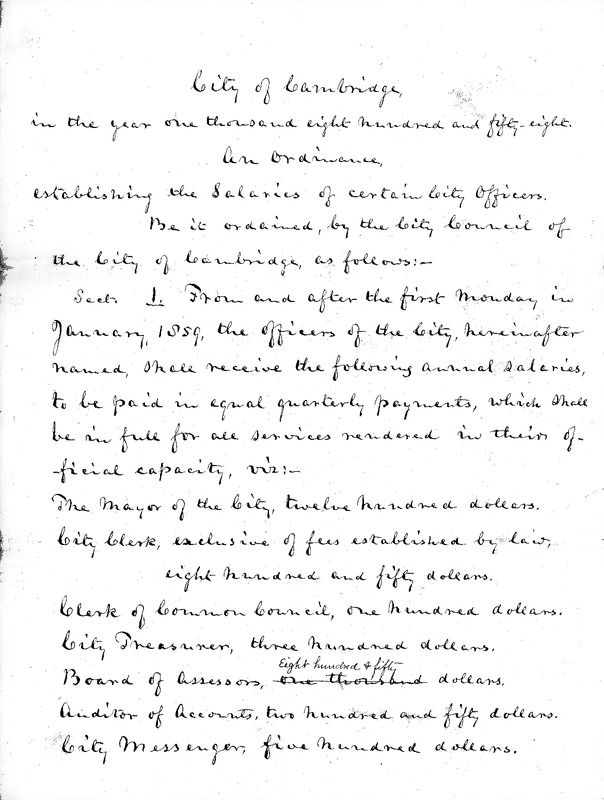 City of Cambridge,
in the year one thousand eight hundred and fifty-eight.
An Ordinance,
establishing the Salaries of certain City Officers.
Be it ordained, by the City Council of
the City of Cambridge, as follows:-
Sect. 1. From and after the first Monday in
January, 1859, the officers of the City, hereinafter
named, shall receive the following annual salaries,
to be paid in equal quarterly payments, which shall
be in full for all services rendered in their of-
-ficial capacity, viz:-
The Mayor of the City, twelve hundred dollars.
City Clerk, exclusive of fees established by law,
eight hundred and fifty dollars.
Clerk of Common Council, one hundred dollars.
City Treasurer, three hundred dollars.
Eight hundred & fifty
Board of Assessors, one thousand dollars.
Auditor of Accounts, two hundred and fifty dollars.
City Messenger, five hundred dollars.